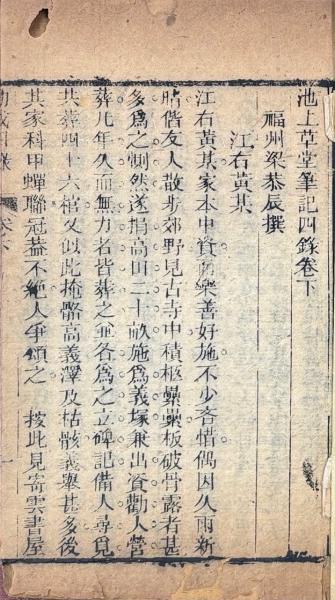 池上草堂筆記四錄卷下
福州梁恭辰撰
江右黃某
江右黃某家本中資而樂善好施不少吝惜偶因久雨新
晴偕友人散步郊野見古寺中積柩纍纍板破骨露者甚
多為之惻然遂捐高田二十畝施為義塚兼出資勸人營
葬凡年久而無力者皆葬之並各為之立碑記備人尋覓
共葬四十六棺又似此掩骼高義澤及枯骸義舉甚多後
其家科甲蟬聯冠蓋不絕人爭頌之 按此見寄雲書屋